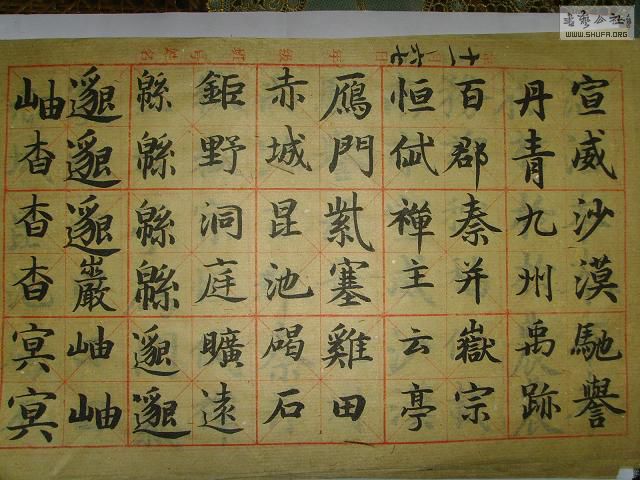 书艺公社
WWW.SHUFA.ORG
宣威沙漠馳譽
丹青九州禹跡
百郡秦并嶽宗
恒岱禪主云亭
鴈門紫塞雞田
赤城昆池碣石
鉅野洞庭曠遠
緜緜緜緜邈邈
邈邈邈巖岫岫
岫杳杳杳冥冥